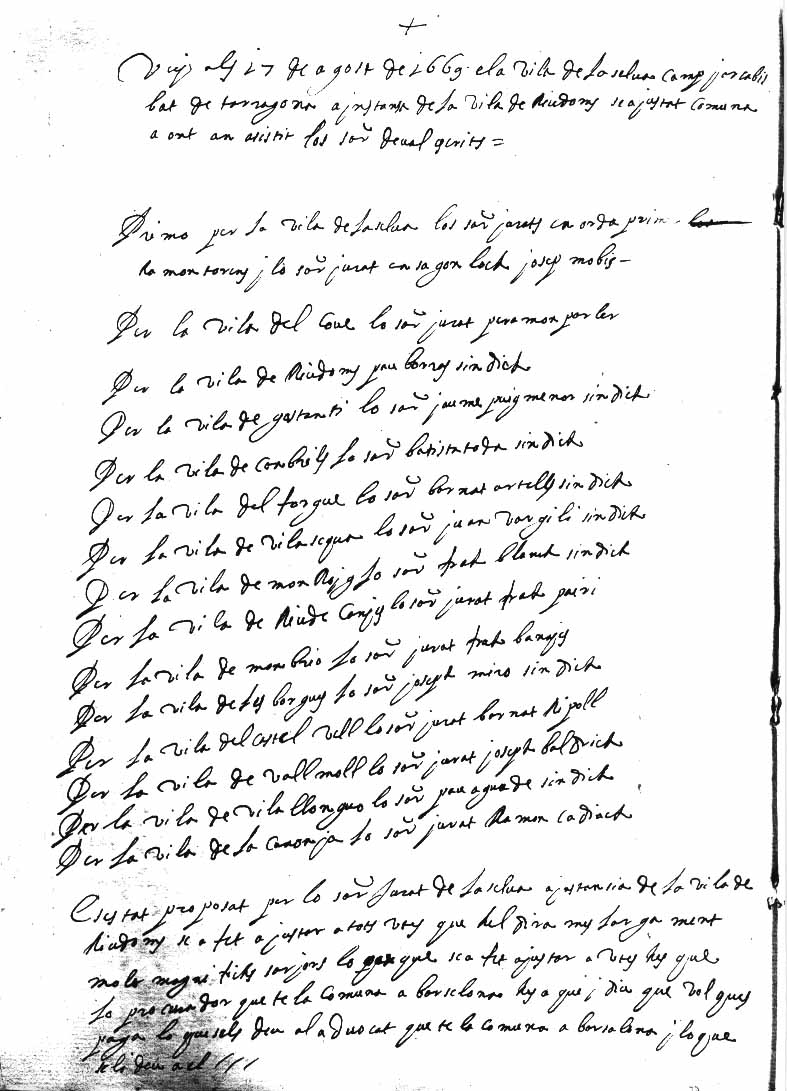 +
Vuy als 17 de agost de 1669 e la vila de la selua camp y arcabis
bat de tarragona a jnstansa de la vila de Riudoms se ajustat comuna
a ont an asistit los sors deual scrits =
Primo per la vila de la selua los sors jurats en orde prim
Ramon torens j lo sor jurat en sagon loch josep mobis –
Per la vila del Coue lo sor jurat pera mon parler
Per la vila de Riudoms pau borras sindich
Per la vila de gostanti lo sor jaume puig menor sindich
Per la vila de Conbrils lo sor batista toda sindich
Per la vila del forgue lo sor bernat ortells sindich
Per la vila de vilasequa lo sor juan vargili sindich
Per la vila de mon Rojg lo sor frah blanch sindich
Per la vila de Riude Canys lo sor jurat frah pairi
Per la vila de monbrio lo sor jurat frah bangs
Per la vila de les borgues lo sor joseph miro sindich
Per la vila del castel vell lo sor jurat bernat Ripoll
Per la vila de vall moll lo sor jurat joseph baldrich
Per la vila de vila llongua lo sor pau aguade sindich
Per la vila de la canonja lo sor jurat Ramon cadiach
Es estat proposat per lo sor Jurat de la selua a jstansia de la vila de
Riudoms se a fet ajustar a tots vtes que hel dira mes largament
molt magnifichs sarjors lo que se a fet ajustar a vtes hes que
lo procurador que te la Comuna a barselona hes aqui j diu que vol ques
paga lo que sels deu al aduocat que te la comuna a barsalona j lo que
se li deu a el